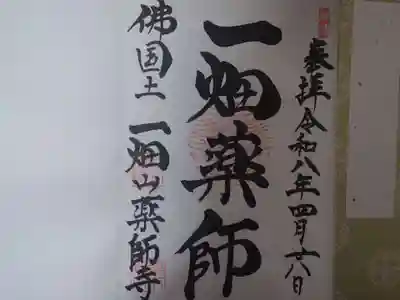 奉拝令和八年四月廿八日
一畑薬師
佛国土一畑山薬師寺